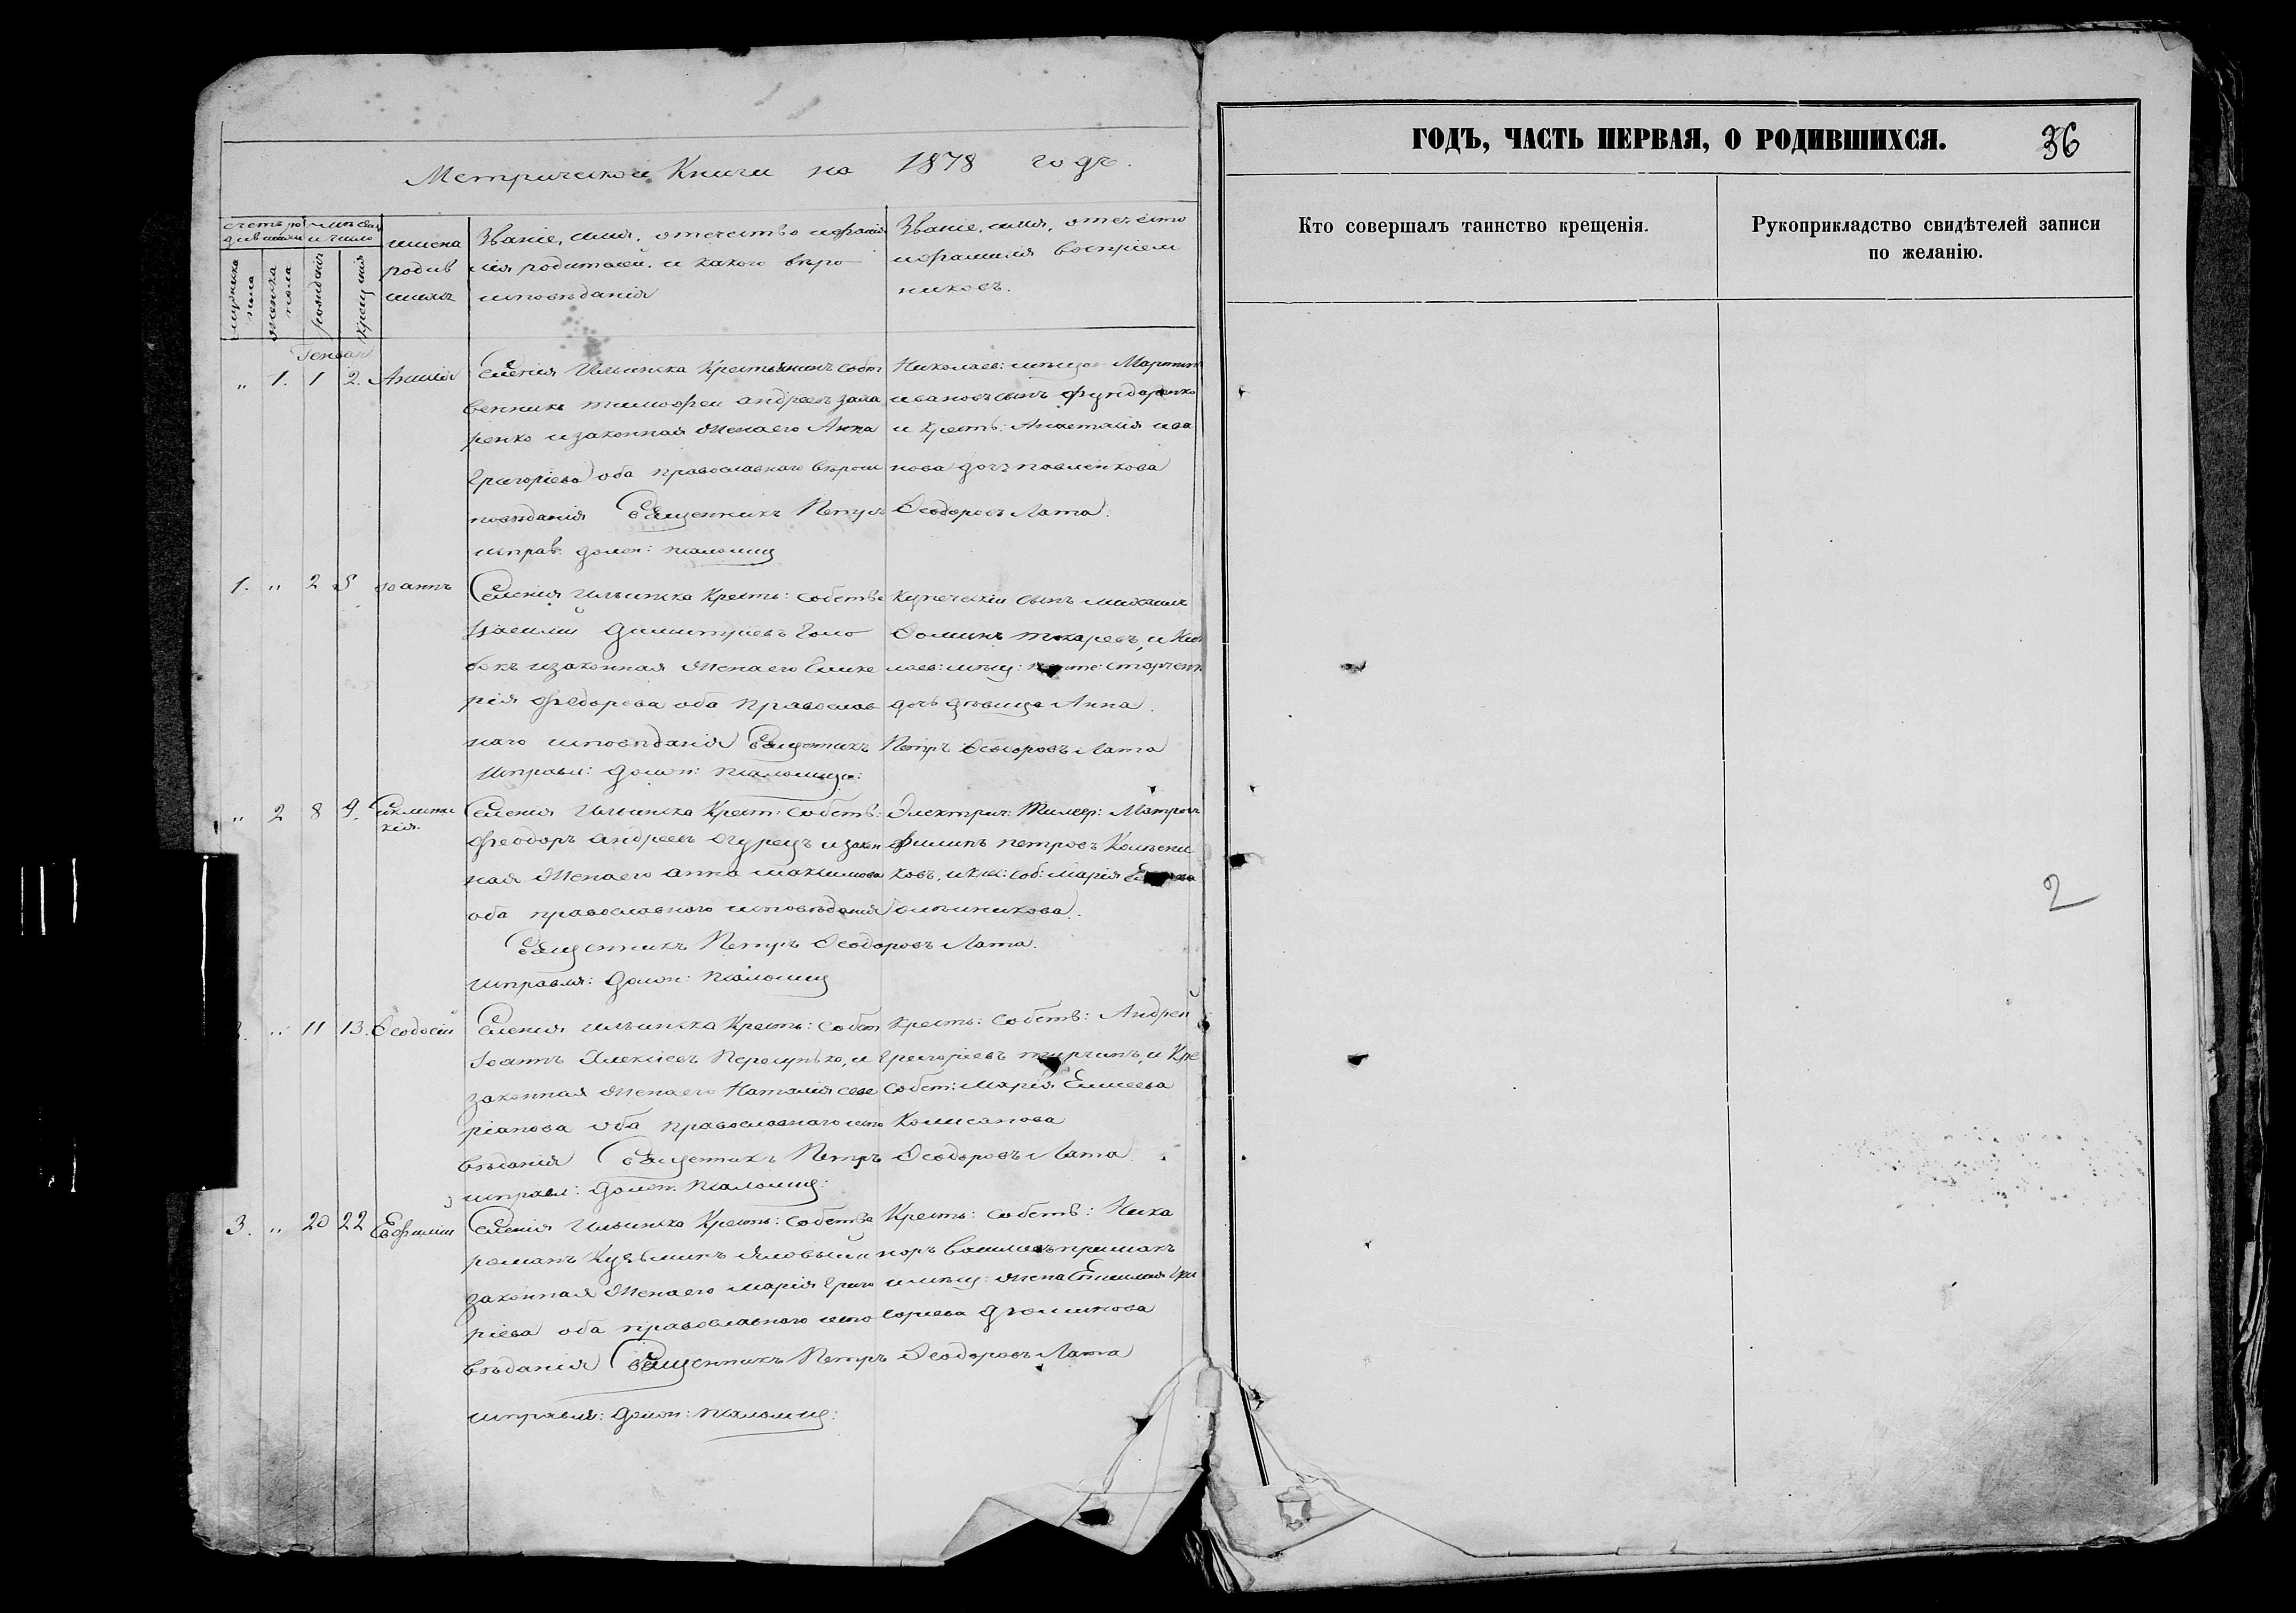 Метрической Книги на 1878 годъ.
счетъ ро
дившихся
мѣсяц
и число
мужеска
пола
женска
пола
рожденія
крещенія
имена
родив
шихъ
Званіе, имя, отечество и фамил
лія родителей, и какого вѣро
исповѣданія
Званіе, имя, отечество
и фамилія воспріем
никовъ.
Генварь
„ 1. 1 2.
Селенія Ильинска Крестьянинъ собст
венникъ Тимофей Андреевъ Заха
ренко и законная жена его Анна
Григоріева оба православнаго вѣрои
повѣданія Священникъ Петръ Ѳеодоровъ Лата.
исправ. долж: псаломщ
Николаев: мѣщан Мартин
Ивановъ сынъ Фундаренко
и Крестъ: Анастасія Ива
нова дочь Павленкова
1. „ 2 5 Іоаннъ
Селенія Ильинска Крестъ: собстве
Василій Димитріевъ Голо
бокъ и законная жена его Глике
рія Федорова оба православ
наго исповѣданія Священникъ Петръ Ѳеодоровъ Лата
Исправл: долж: псаломщ:
Купеческій сынъ Михаилъ
Фоминъ Токаревъ, и Ник
лаев: мѣщ:
дочь дѣвица Анна.
„ 2 8 9. Гкликерія.
Селенія Ильинска Крест: собств:
Феодоръ Андреевъ Огурецъ и закон
ная жена его Анна Максимова
оба православного исповѣданія
Священникъ Петръ Ѳеодоровъ Лата.
исправля: долж: псаломщ
Филипъ Петровъ Колесни
ковъ, и кре: соб: Марія
ольникова.
„ 11 13. Ѳеодосій
Селенія Ильинска Крестъ: собст
Іоаннъ Алексіевъ Перепунько, и
законная жена его Наталія Севе
ріанова оба православнаго испо
вѣданія Священникъ Петръ Ѳеодоровъ Лата
исправл: долж: псаломщ:
Крестъ: собств: Андрей
Григоріевъ Турчинъ, и Кре
собст: Марія Елисеева
Комисанова
3. „ 20 22 Евфимій
Селенія Ильинска Крестъ: собстве
Романъ Кузьминъ Яловый и
законная жена его Марія Григо
ріева оба православного испо
вѣданія Священникъ Петръ Ѳеодоровъ Лата
исправля: долж: псаломщ:
Крестъ: собств: Ника
норъ Васильевъ Примакъ
и мѣщ: жена Гри
горіева Фоминова
ГОДЪ, ЧАСТЬ ПЕРВАЯ, О РОДИВШИХСЯ.
36
Кто совершалъ таинство крещенія.
Рукоприкладство свидѣтелей записи
по желанію.
2